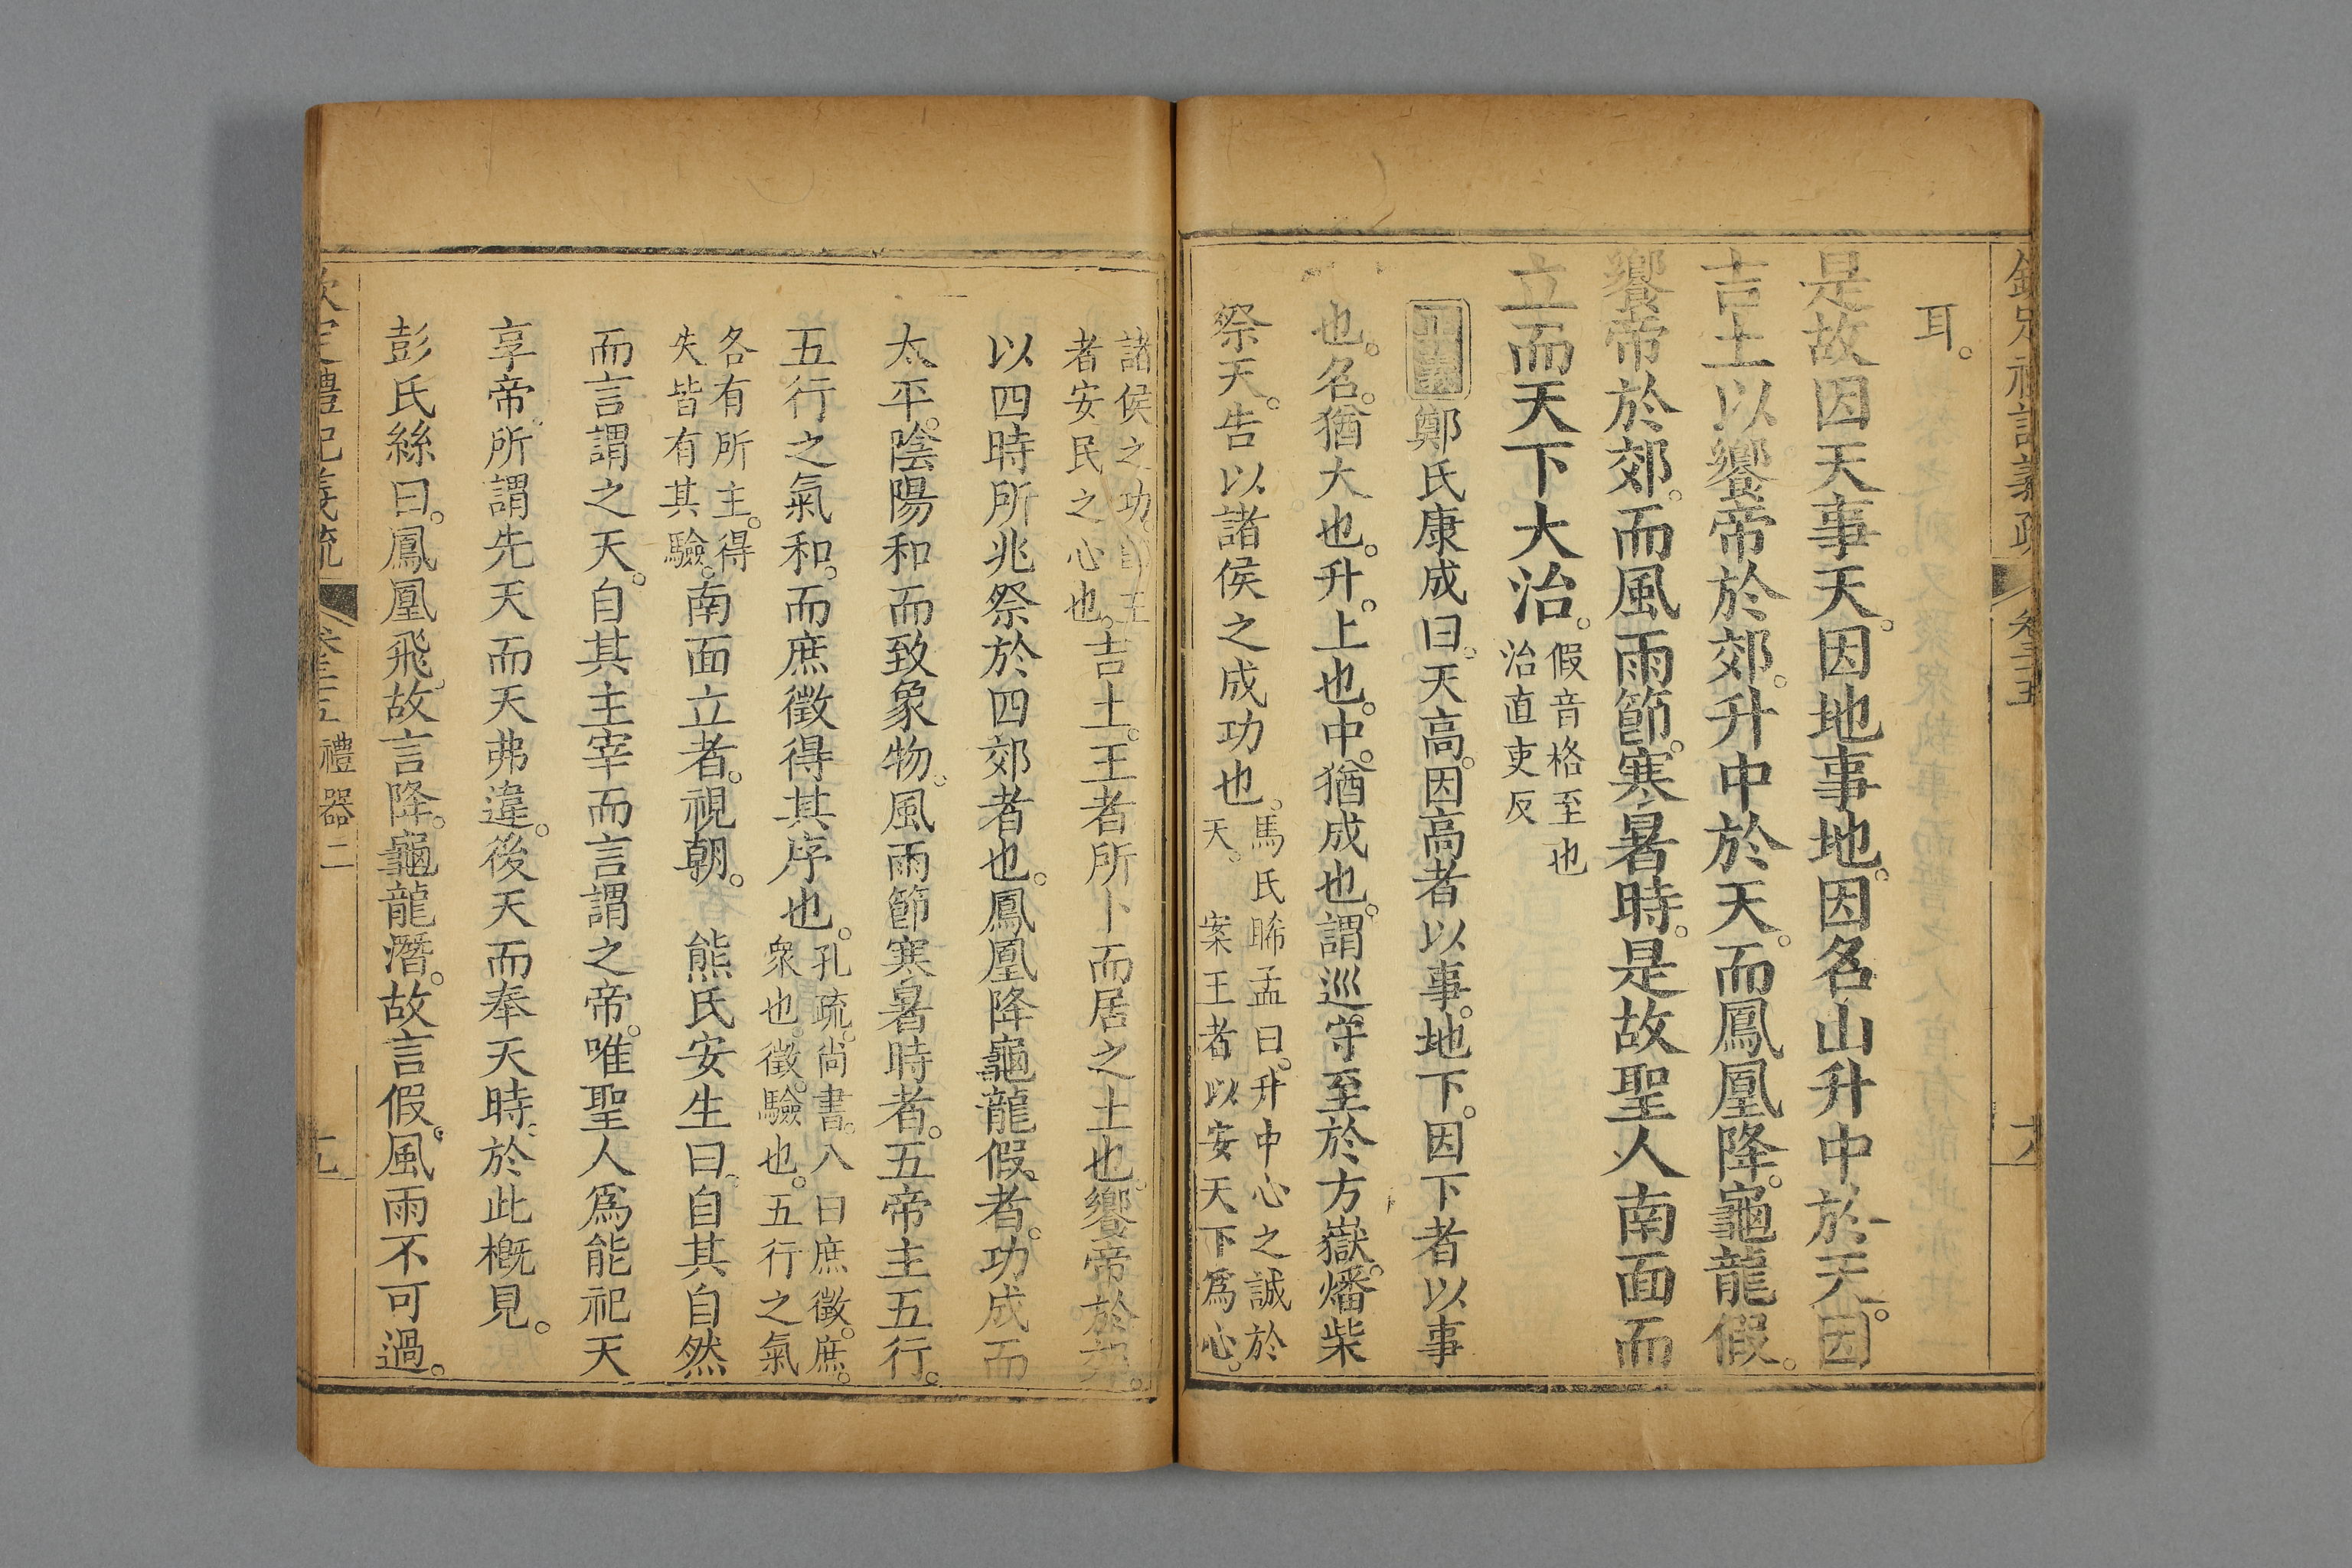 欽定禮記義疏 卷三十五
耳。
是故因天事天。因地事地。因名山升中於天。因
吉土以饗帝於郊。升中於天。而鳳凰降。龜龍假。
饗帝於郊。而風雨節。寒暑時。是故聖人南面而
立。而天下大治。
假音格至也
治直吏反
正義鄭氏康成曰。天高。因高者以事。地下。因下者以事
也。名。猶大也。升。上也。中。猶成也。謂巡守至於方嶽。燔柴
祭天。告以諸侯之成功也。
馬氏睎孟曰。升中心之誠於
天。案王者以安天下爲心。
諸侯之功。
者安民之心也。
吉土。王者所卜而居之土也。饗帝於郊。
以四時所兆祭於四郊者也。鳳凰降龜龍假者。功成而
太平。陰陽和而致象物。風雨節寒暑時者。五帝主五行。
五行之氣和。而庶徵得其序也。
孔疏。尚書。八曰庶徵。庶。
衆也。徵。驗也。五行之氣
各有所主。得
失皆有其驗。
南面立者。視朝。 熊氏安生曰。自其自然
而言謂之天。自其主宰而言謂之帝。唯聖人爲能祀天
享帝。所謂先天而天弗違。後天而奉天時。於此槪見。
彭氏絲曰。鳳凰飛。故言降。龜龍潛。故言假。風雨不可過。
欽定禮記義疏 卷三十五 禮器二 十九